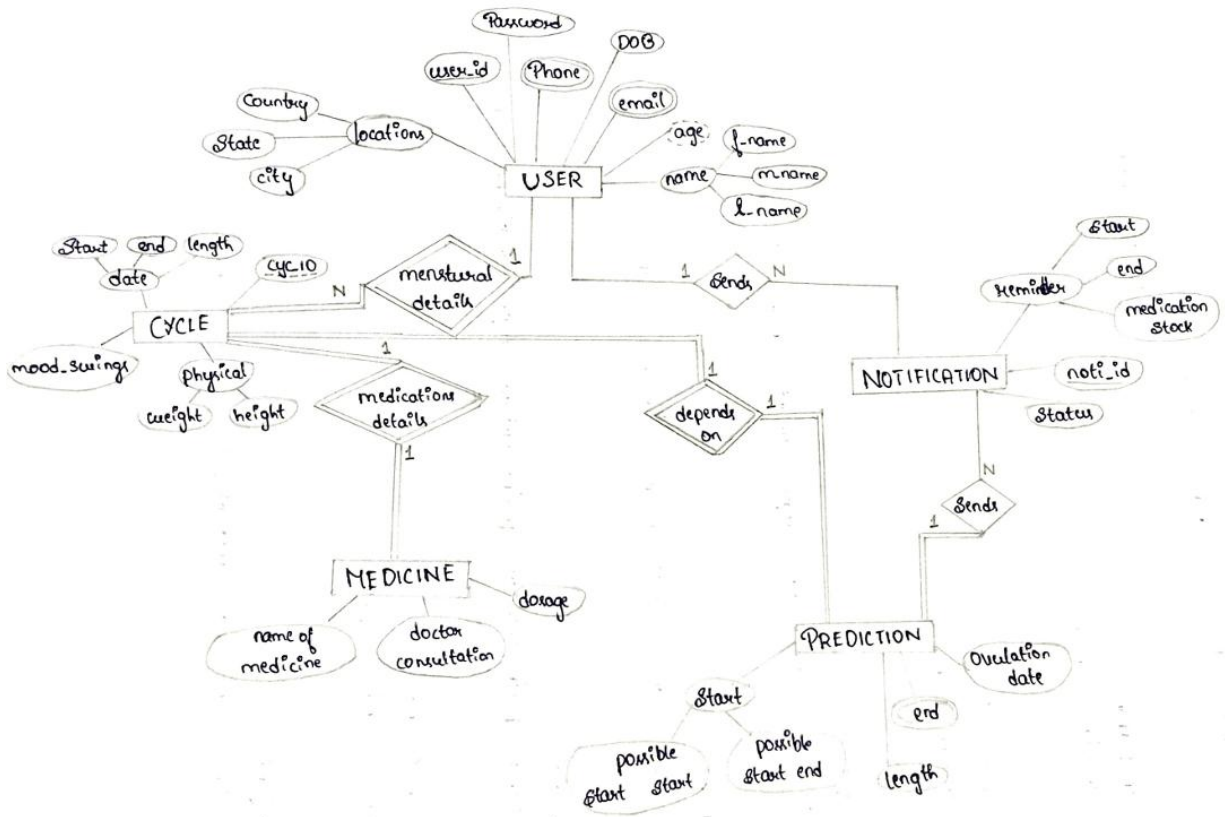 Password
DOB
user_id
Phone
email
Country
locations
State
city
age
f-name
name
m.name
l-name
USER
Start
end
length
date
cyc_ID
menstural
details
1
N
1
Sends
N
Start
reminder
end
medication
stock
CYCLE
mood_swings
physical
weight
height
1
medications
details
1
1
depends
on
1
NOTIFICATION
noti_id
Status
N
Sends
1
MEDICINE
name of
medicine
doctor
consultation
dosage
PREDICTION
Ovulation
date
Start
end
possible
Start Start
possible
start end
length